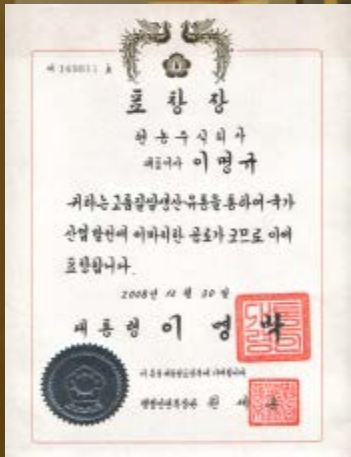 제 165011 호
표창장
한농주식회사
대표이사 이명규
귀하는 고품질쌀생산유통을 통하여 국가
산업발전에 이바지한 공로가 크므로 이에
표창합니다.
2008년 11월 30일
대통령 이명박
이 증을 대통령표창부에 기입합니다
행정안전부장관 원세훈